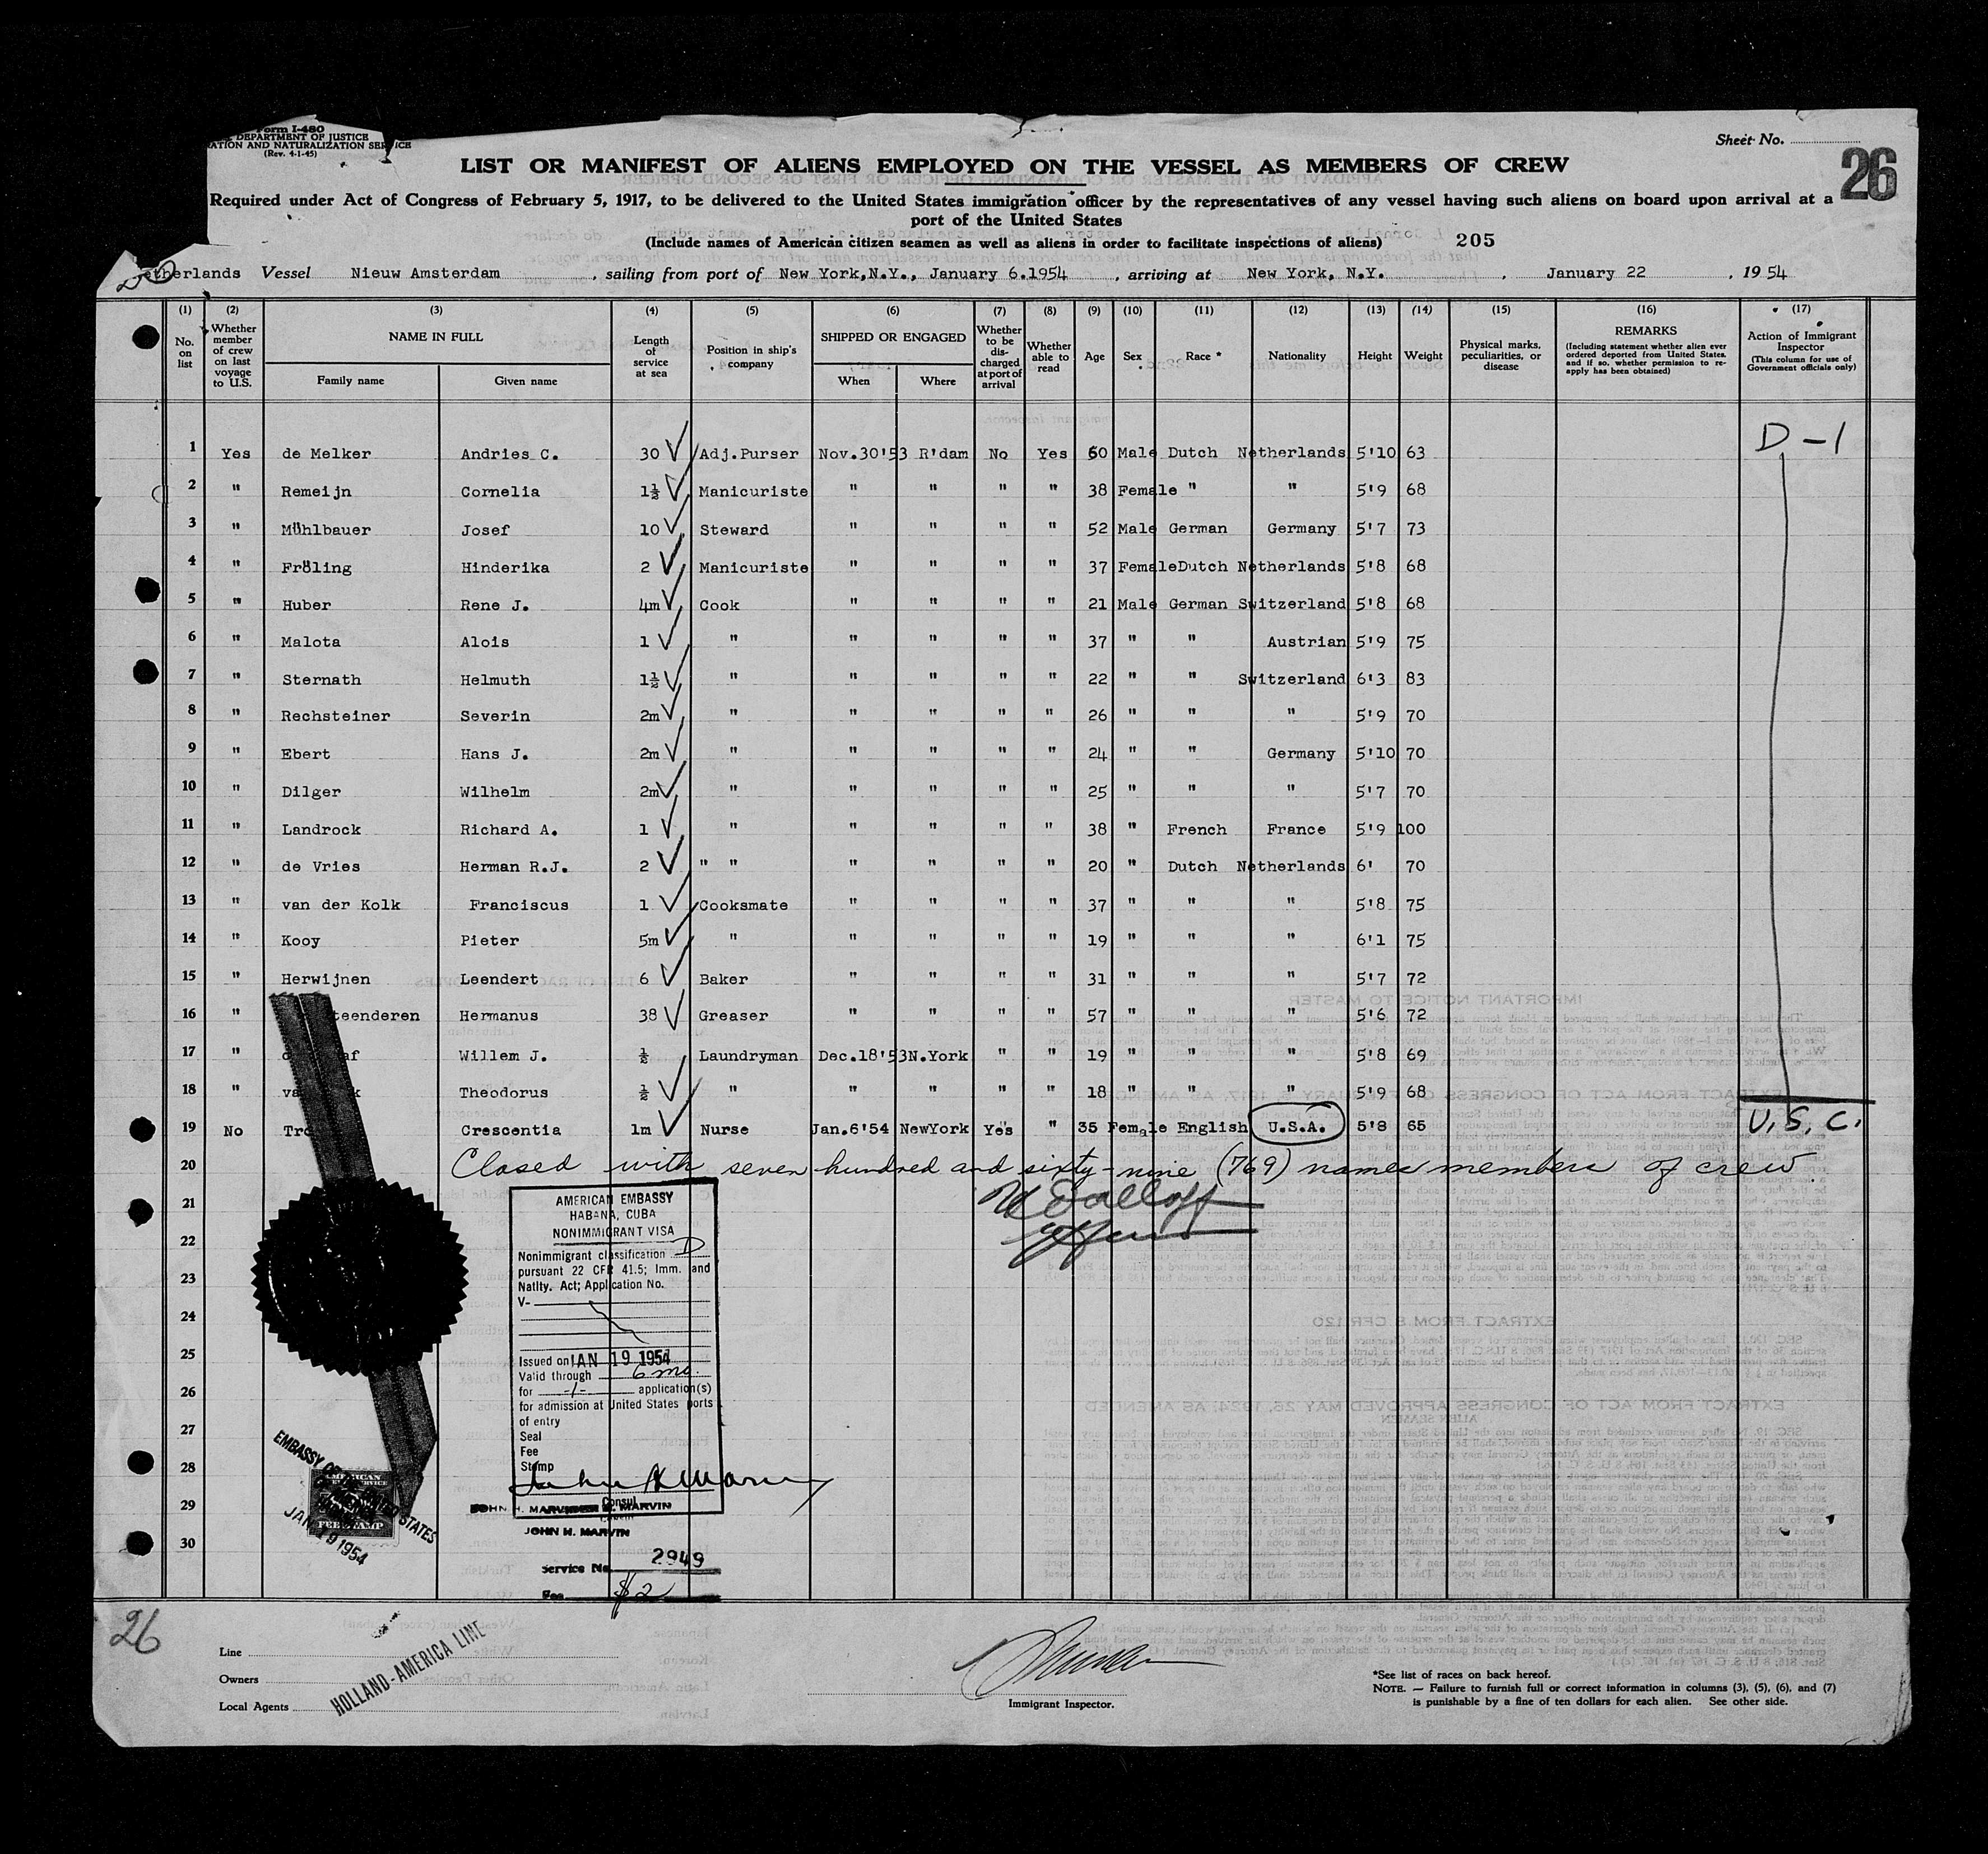 Form I-480
DEPARTMENT OF JUSTICE
ATION AND NATURALIZATION SERVICE
(Rev. 4-1-45)
Sheet No.
26
LIST OR MANIFEST OF ALIENS EMPLOYED ON THE VESSEL AS MEMBERS OF CREW
Required under Act of Congress of February 5, 1917, to be delivered to the United States immigration officer by the representatives of any vessel having such aliens on board upon arrival at a
port of the United States
(Include names of American citizen seamen as well as aliens in order to facilitate inspections of aliens) 205
etherlands Vessel Nieuw Amsterdam, sailing from port of New York,N.Y., January 6.1954, arriving at New York, N.Y., January 22, 1954
(1) (2) (3) (4) (5) (6) (7) (8) (9) (10) (11) (12) (13) (14) (15) (16) (17)
No. on list
Whether member of crew on last voyage to U.S.
NAME IN FULL
Family name Given name
Length of service at sea
Position in ship's company
SHIPPED OR ENGAGED
When Where
Whether to be discharged at port of arrival
Whether able to read
Age Sex Race * Nationality Height Weight
Physical marks, peculiarities, or disease
REMARKS
(Including statement whether alien ever ordered deported from United States, and if so, whether permission to re-apply has been obtained)
Action of Immigrant Inspector
(This column for use of Government officials only)
D-1
1 Yes de Melker Andries C. 30 Adj.Purser Nov.30'53 R'dam No Yes 60 Male Dutch Netherlands 5'10 63
2 " Remeijn Cornelia 1½ Manicuriste " " " " 38 Female " " 5'9 68
3 " Mühlbauer Josef 10 Steward " " " " 52 Male German Germany 5'7 73
4 " Fröling Hinderika 2 Manicuriste " " " " 37 Female Dutch Netherlands 5'8 68
5 " Huber Rene J. 4m Cook " " " " 21 Male German Switzerland 5'8 68
6 " Malota Alois 1 " " " " " 37 " " Austrian 5'9 75
7 " Sternath Helmuth 1½ " " " " " 22 " " Switzerland 6'3 83
8 " Rechsteiner Severin 2m " " " " " 26 " " " 5'9 70
9 " Ebert Hans J. 2m " " " " " 24 " " Germany 5'10 70
10 " Dilger Wilhelm 2m " " " " " 25 " " " 5'7 70
11 " Landrock Richard A. 1 " " " " " 38 " French France 5'9 100
12 " de Vries Herman R.J. 2 " " " " " " 20 " Dutch Netherlands 6' 70
13 " van der Kolk Franciscus 1 Cooksmate " " " " 37 " " " 5'8 75
14 " Kooy Pieter 5m " " " " " 19 " " " 6'1 75
15 " Herwijnen Leendert 6 Baker " " " " 31 " " " 5'7 72
16 " teenderen Hermanus 38 Greaser " " " " 57 " " " 5'6 72
17 " Willem J. ½ Laundryman Dec.18'53 N.York " " 19 " " " 5'8 69
18 " Theodorus ½ " " " " " 18 " " " 5'9 68
19 No Crescentia 1m Nurse Jan.6'54 NewYork Yes " 35 Female English U.S.A. 5'8 65 U.S.C.
20 Closed with seven hundred and sixty-nine (769) names members of crew
21
22
23
24
25
26
27
28
29
30
AMERICAN EMBASSY
HABANA, CUBA
NONIMMIGRANT VISA
Nonimmigrant classification D
pursuant 22 CFR 41.5; Imm. and
Natlty. Act; Application No.
V-
Issued on JAN 19 1954
Valid through 6 mo.
for -1- application(s)
for admission at United States ports
of entry
Seal
Fee
Stamp
Consul
JOHN H. MARVIN
Service No. 2949
Fee $2
EMBASSY OF
STATES
AMERICAN
FEE STAMP
JAN 19 1954
26
Line
Owners
Local Agents
HOLLAND-AMERICA LINE
Immigrant Inspector.
*See list of races on back hereof.
NOTE. — Failure to furnish full or correct information in columns (3), (5), (6), and (7)
is punishable by a fine of ten dollars for each alien. See other side.